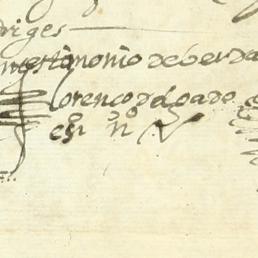 diges
en testimonio de berda
lorenço delgado
esno no